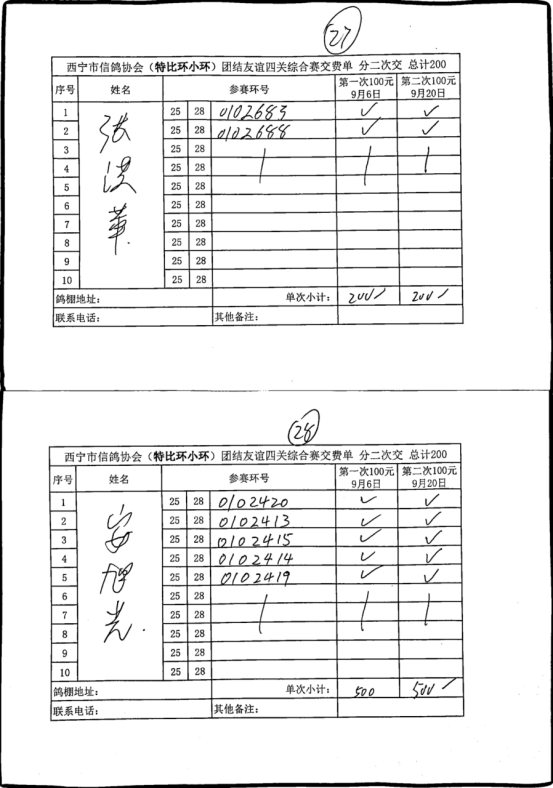 27
西宁市信鸽协会（特比环小环）团结友谊四关综合赛交费单 分二次交 总计200
序号 姓名 参赛环号 第一次100元 9月6日 第二次100元 9月20日
张洪革
1 25 28 0102683 ✓ ✓
2 25 28 0102688 ✓ ✓
3 25 28
4 25 28
5 25 28
6 25 28
7 25 28
8 25 28
9 25 28
10 25 28
鸽棚地址： 单次小计： 200 200
联系电话： 其他备注：
28
西宁市信鸽协会（特比环小环）团结友谊四关综合赛交费单 分二次交 总计200
序号 姓名 参赛环号 第一次100元 9月6日 第二次100元 9月20日
安旭光
1 25 28 0102420 ✓ ✓
2 25 28 0102413 ✓ ✓
3 25 28 0102415 ✓ ✓
4 25 28 0102414 ✓ ✓
5 25 28 0102419 ✓ ✓
6 25 28
7 25 28
8 25 28
9 25 28
10 25 28
鸽棚地址： 单次小计： 500 500
联系电话： 其他备注：